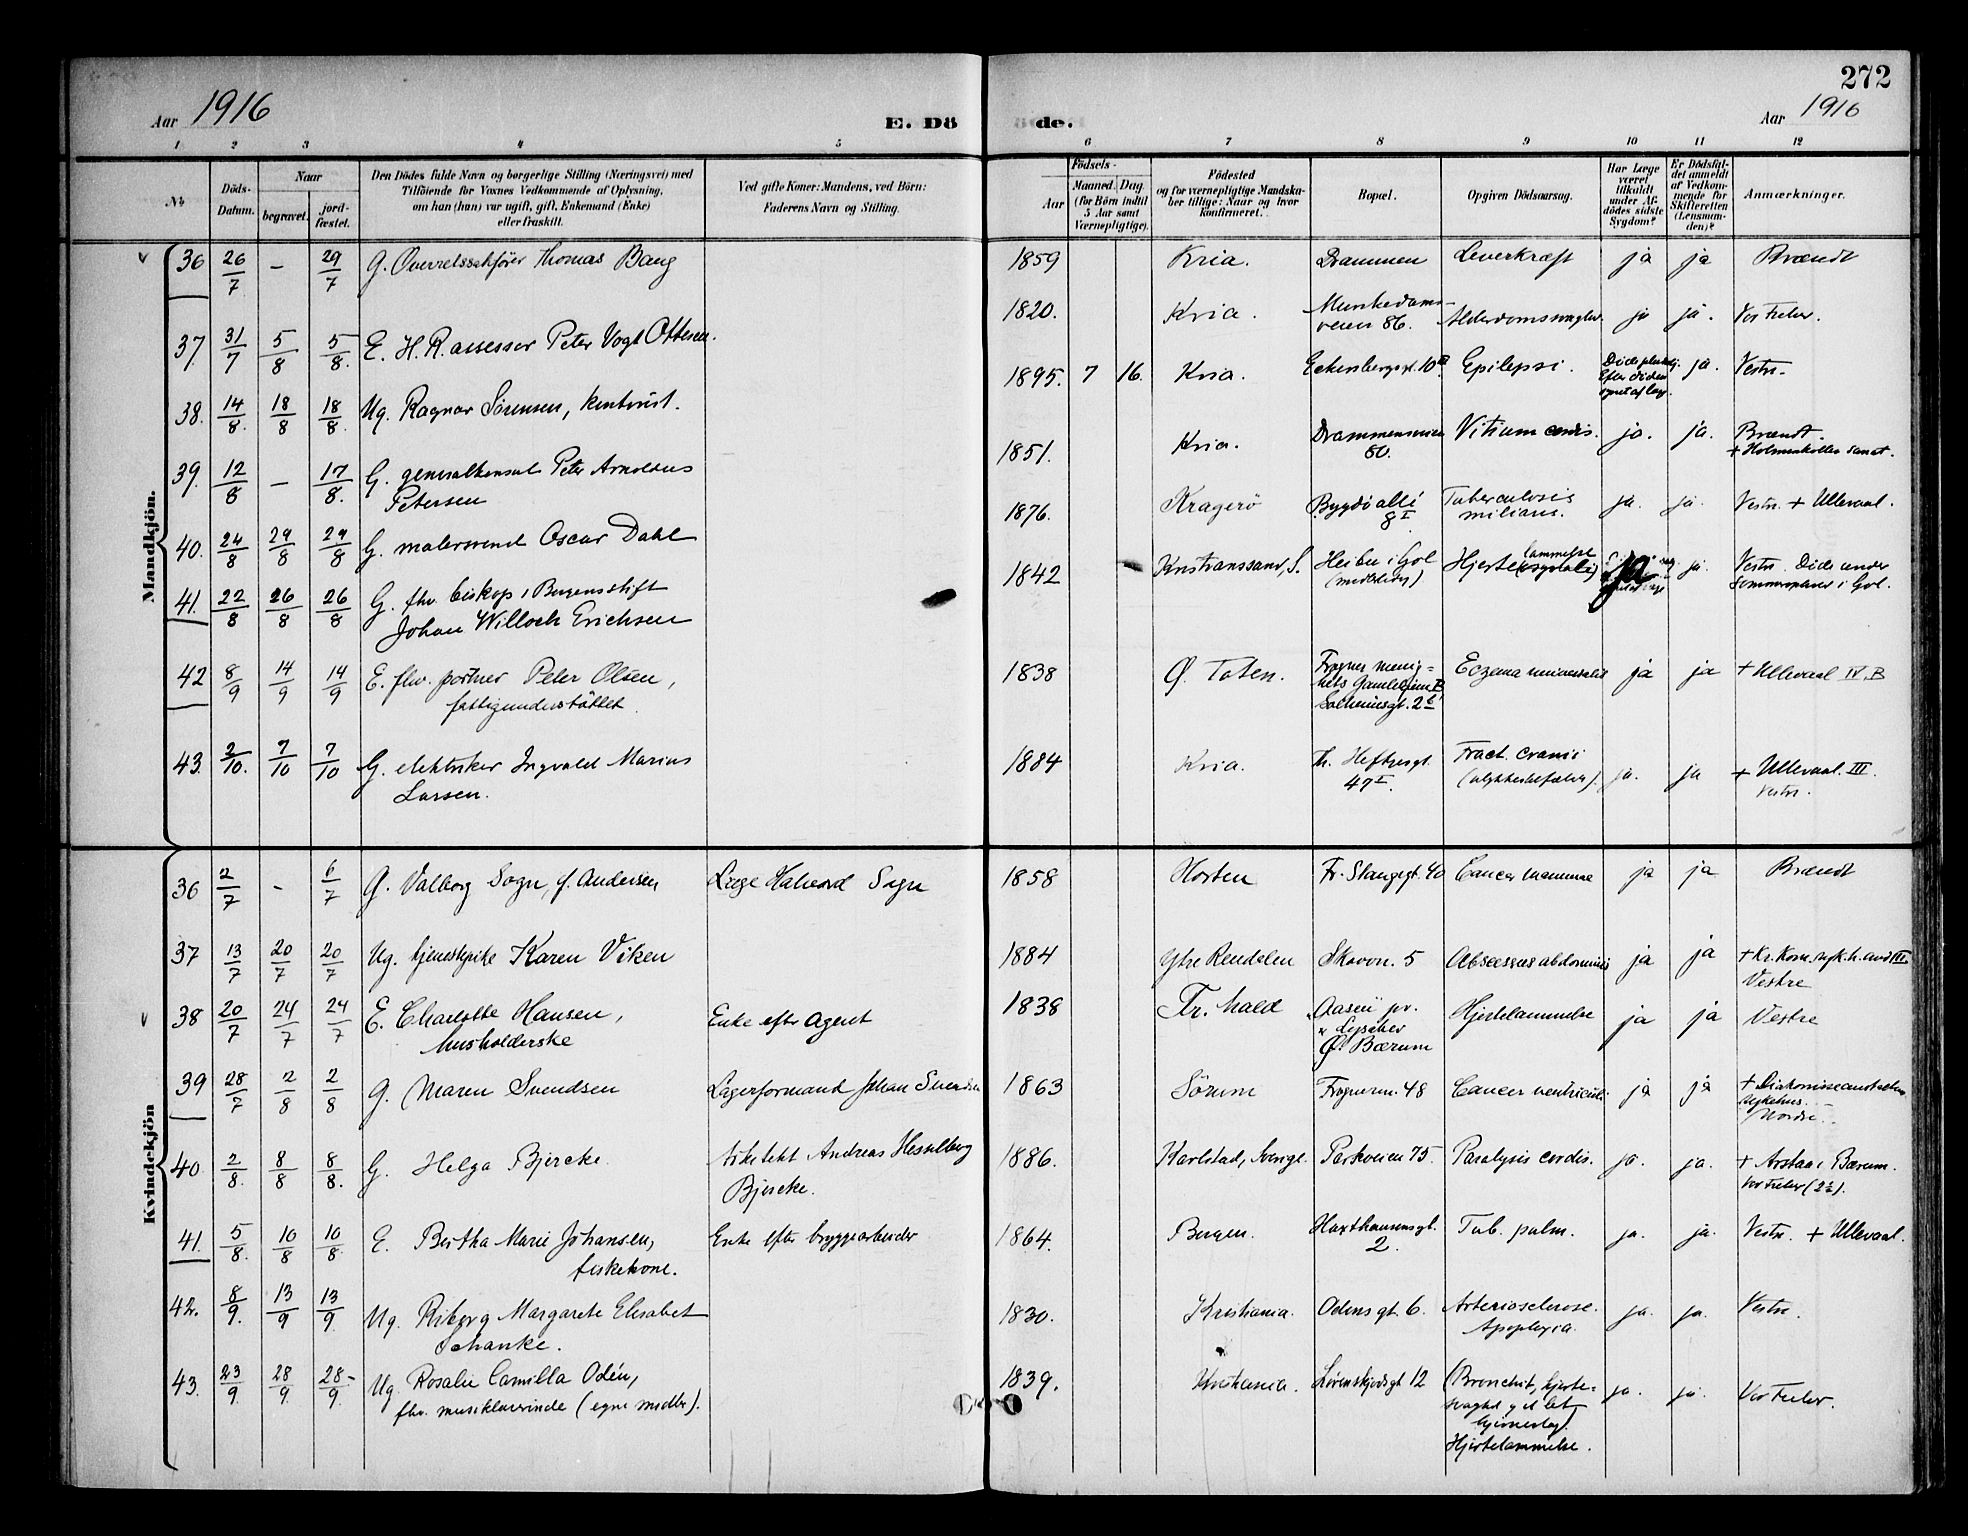 272
Aar 1916
E. Dö
de.
Aar 1916
1 2 3 4 5 6 7 8 9 10 11 12
№
Döds-
Datum.
Naar
begravet.
jord-
fæstet.
Den Dödes fulde Navn og borgerlige Stilling (Næringsvei) med
Tilföiende for Voxnes Vedkommende af Oplysning,
om han (hun) var ugift, gift, Enkemand (Enke)
eller fraskilt.
Ved gifte Koner: Mandens, ved Börn:
Faderens Navn og Stilling.
Födsels-
Aar
Maaned. Dag.
(for Börn indtil
5 Aar samt
Værnepligtige).
Födested
og for værnepligtige Mandska-
ber tillige: Naar og hvor
konfirmeret.
Bopæl.
Opgiven Dödsaarsag.
Har Læge
været
tilkaldt
under Af-
dödes sidste
Sygdom?
Er Dödsfal-
det anmeldt
af Vedkom-
mende for
Skifteretten
(Lensman-
den)?
Anmærkninger.
Mandkjön.
36 26/7 – 29/7 G. Overretssakfører Thomas Bang 1859 Kria. Drammen Leverkræft ja ja Brændt
37. 31/7 5/8 5/8. E. H.R. assessor Peter Vogt Ottesen. 1820. Kria. Munkedams-
veien 86. ja ja. Vor Frelser.
38. 14/8. 18/8 18/8. Ug. Ragnar Sørensen, kontorist. 1895. 7 16. Kria. Eckersbergsgt. 10 Epilepsi. ja. Vestre.
39. 12/8 – 17/8. G. generalkonsul Peter Arnoldus
Petersen 1851. Kria. Drammensveien
80. Vitium cordis. ja. ja. Brændt.
+ Holmenkollen sanat.
40. 24/8 29/8 29/8 G. malersvend Oscar Dahl 1876. Kragerö Bygdö allé
8 I Tuberculosis
miliaris. ja. ja. Vestre. + Ullevaal.
41. 22/8 26/8 26/8 G. fhv. biskop i Bergens stift
Johan Willoch Erichsen 1842 Kristianssand, S. i Gol Hjertelammelse ja ja. Vestre. Døde under
Sommerophold i Gol.
42 8/9 14/9 14/9 E. fhv. portner Peter Olsen,
fattigunderstöttet 1838 Ø. Toten. Frogner menig-
hets Gamlehjem B
Solheimsgt. 2 Eczema universalis ja ja + Ullevaal IV, B
43. 2/10. 7/10 7/10 G. elektriker Ingvald Marius
Larsen. 1884 Kria. Th. Heftyesgt.
47 I. Fract. cranii
(ulykkestilfælde). ja. ja + Ullevaal. III.
Vestre.
Kvindekjön
36 2/7 - 6/7 G. Valborg Sogn, f. Andersen Læge Halvord Sogn 1858 Horten Fr. Stangsgt. 40 Cancer mammae ja ja Brændt
37 13/7 20/7 20/7 Ug. tjenestepike Karen Viken 1884 Ytre Rendalen Skovvn. 5 Abscessus abdominis ja ja + Kr. Kom. syk.h. avd III.
Vestre
38 20/7 24/7 24/7 E. Charlotte Hansen,
husholderske Enke efter agent 1838 Fr. hald Aasen pr.
Lysaker
Ø. Bærum Hjertelammelse ja ja Vestre
39 28/7 2/8 2/8 G. Maren Svendsen Lagerformand Johan Svendsen 1863 Sörum Frognervn. 48 Cancer ventriculi ja ja + Diakonisseanstaltens
sykehus.
Nordre.
40 2/8. 8/8 8/8. G. Helga Bjercke. Arkitekt Andreas Hesselberg
Bjercke. 1886. Karlstad, Sverige. Parkveien 75. Paralysis cordis. ja. ja. + Arstad i Bærum.
Vor Frelser (2 ½).
41. 5/8. 10/8 10/8. E. Bertha Marie Johansen,
fiskekone. Enke efter bryggearbeider 1864. Bergen. Haxthausensgt.
2. Tub. pulm. ja. ja. Vestre. + Ullevaal.
42. 8/9. 13/9 13/9 Ug. Riborg Margarete Elisabet
Schanke. 1830. Kristiania. Odins gt. 6. Arteriosclerose.
Apoplexia. ja. ja. Vestre.
43. 23/9 28/9. 28/9. Ug. Rosalie Camilla Odén,
fhv. musiklærerinde (egne midler). 1839. Kristiania. Lövenskjoldsgt 12 (Bronchit, hjerte-
svaghed
Hjertelammelse. ja. ja. Vor Frelser.